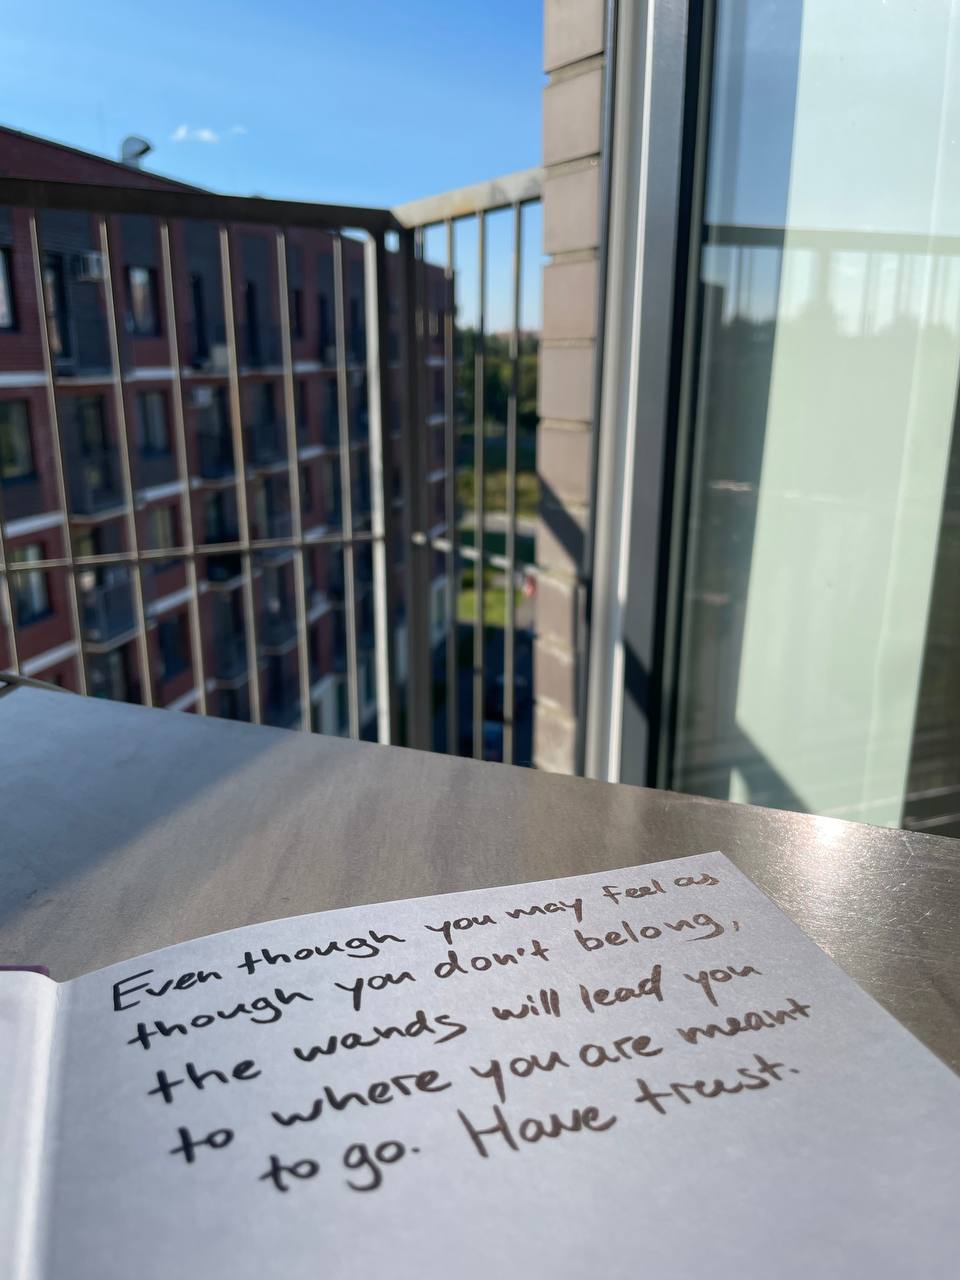 Even though you may feel as
though you don't belong,
the wands will lead you
to where you are meant
to go. Have trust.